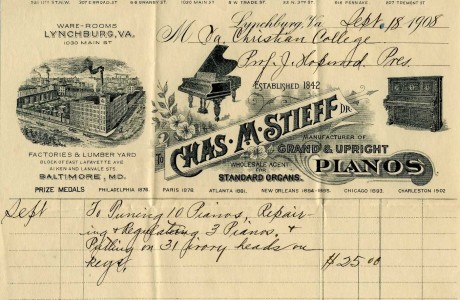 WARE-ROOMS
LYNCHBURG, VA.
1030 MAIN ST
Lynchburg, Va Sept. 18 1908
M Va. Christian College
Prof. J. Hopwood Pres.
ESTABLISHED 1842
TO CHAS. M. STIEFF DR.
MANUFACTURER OF
GRAND & UPRIGHT
PIANOS
WHOLESALE AGENT
FOR
STANDARD ORGANS.
FACTORIES & LUMBER YARD
BLOCK OF EAST LAFAYETTE AVE
AIKEN AND LANVALE STS.
BALTIMORE, MD.
PRIZE MEDALS PHILADELPHIA 1876. PARIS 1878. ATLANTA 1881. NEW ORLEANS 1884-1885. CHICAGO 1893. CHARLESTON 1902
Sept To Tuning 10 Pianos, Repair-
ing & Regulating 3 Pianos, &
Putting on 31 ivory heads on
keys, $25.00